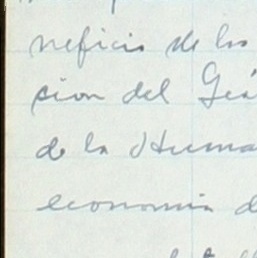 neficio de los
cion del
de la Huma
economia d